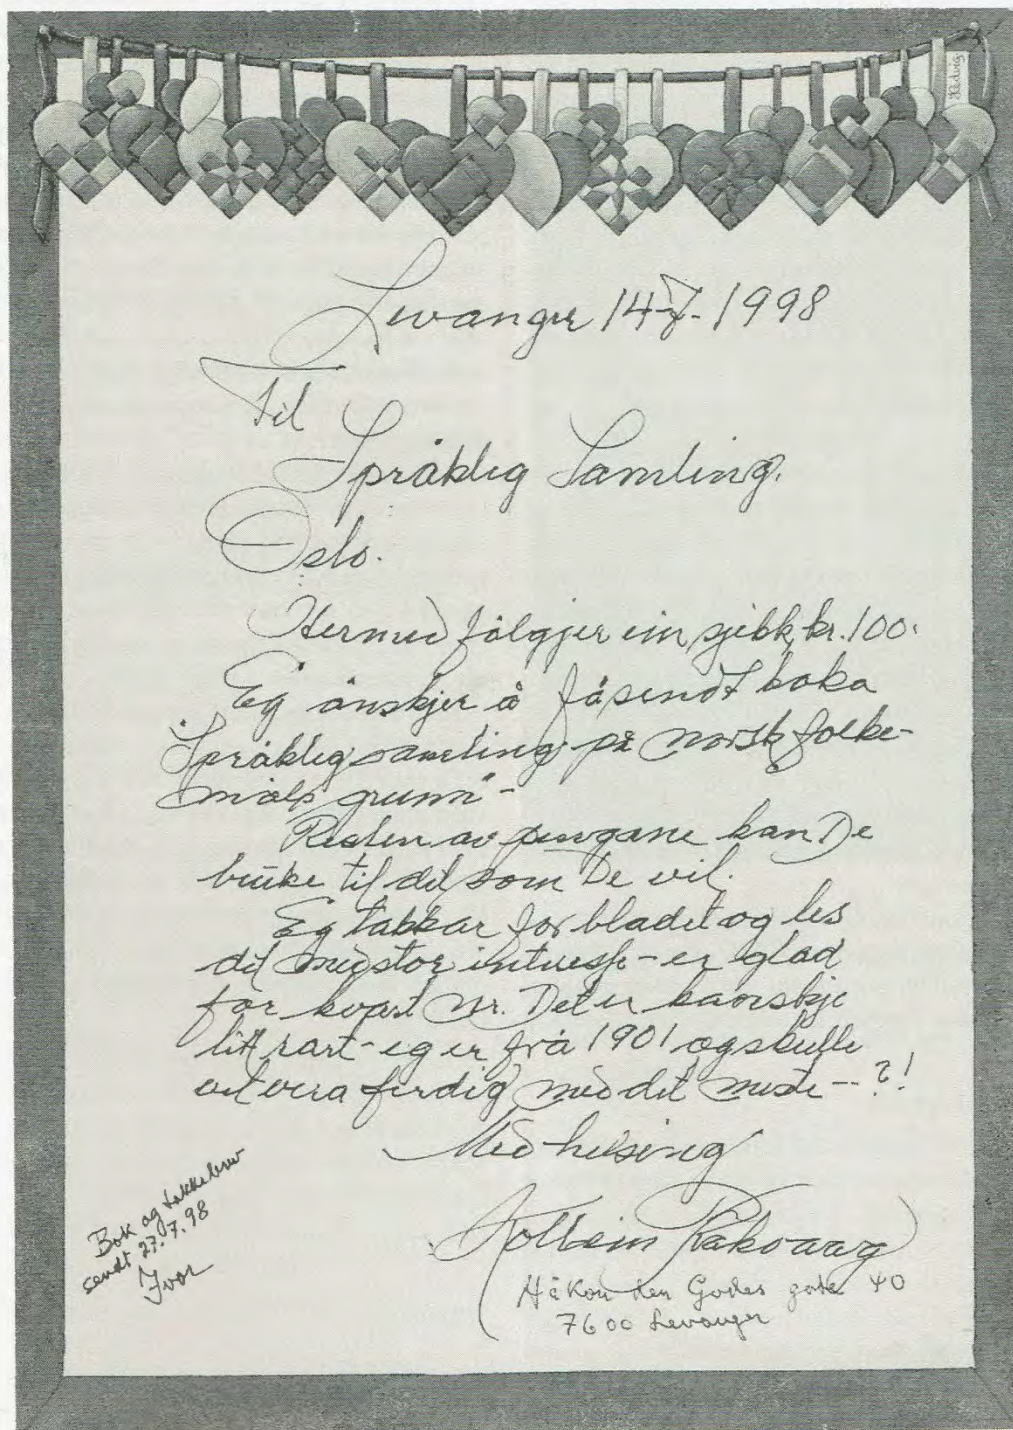 Levanger 14-7-1998
Til
Språklig Samling.
Oslo.
Hermed følgjer ein sjekk, kr. 100.
Eg ønskjer å få sendt boka
"Språklig samling på norsk folke-
måls grunn"-
Resten av pengane kan De
bruke til det som De vil.
Eg takkar for bladet og les
det med stor interesse - er glad
for kvart nr. Det er kanskje
litt rart - eg er frå 1901 og skulle
vel vera ferdig med det meste -- ?!
Med helsing
Håkon den Godes gate 40
7600 Levanger
Bok og takkebrev
sendt 27.7.98
Ivar